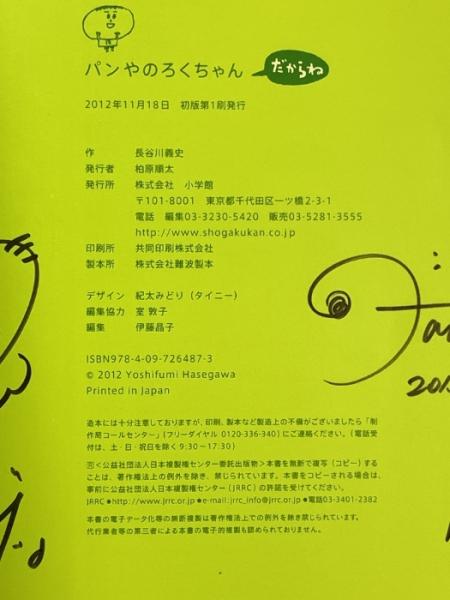 パンやのろくちゃん だからね
2012年11月18日 初版第1刷発行
作 長谷川義史
発行者 柏原順太
発行所 株式会社 小学館
〒101-8001 東京都千代田区一ツ橋2-3-1
電話 編集03-3230-5420 販売03-5281-3555
http://www.shogakukan.co.jp
印刷所 共同印刷株式会社
製本所 株式会社難波製本
デザイン 紀太みどり(タイニー)
編集協力 室 敦子
編集 伊藤晶子
ISBN978-4-09-726487-3
© 2012 Yoshifumi Hasegawa
Printed in Japan
造本には十分注意しておりますが、印刷、製本など製造上の不備がございましたら「制
作局コールセンター」(フリーダイヤル 0120-336-340)にご連絡ください。(電話受
付は、土・日・祝日を除く9:30~17:30)
〈公益社団法人日本複製権センター委託出版物〉本書を無断で複写(コピー)する
ことは、著作権法上の例外を除き、禁じられています。本書をコピーされる場合は、
事前に公益社団法人日本複製権センター(JRRC)の許諾を受けてください。
JRRC●http://www.jrrc.or.jp●e-mail:jrrc_info@jrrc.or.jp●電話03-3401-2382
本書の電子データ化等の無断複製は著作権法上での例外を除き禁じられています。
代行業者等の第三者による本書の電子的複製も認められておりません。